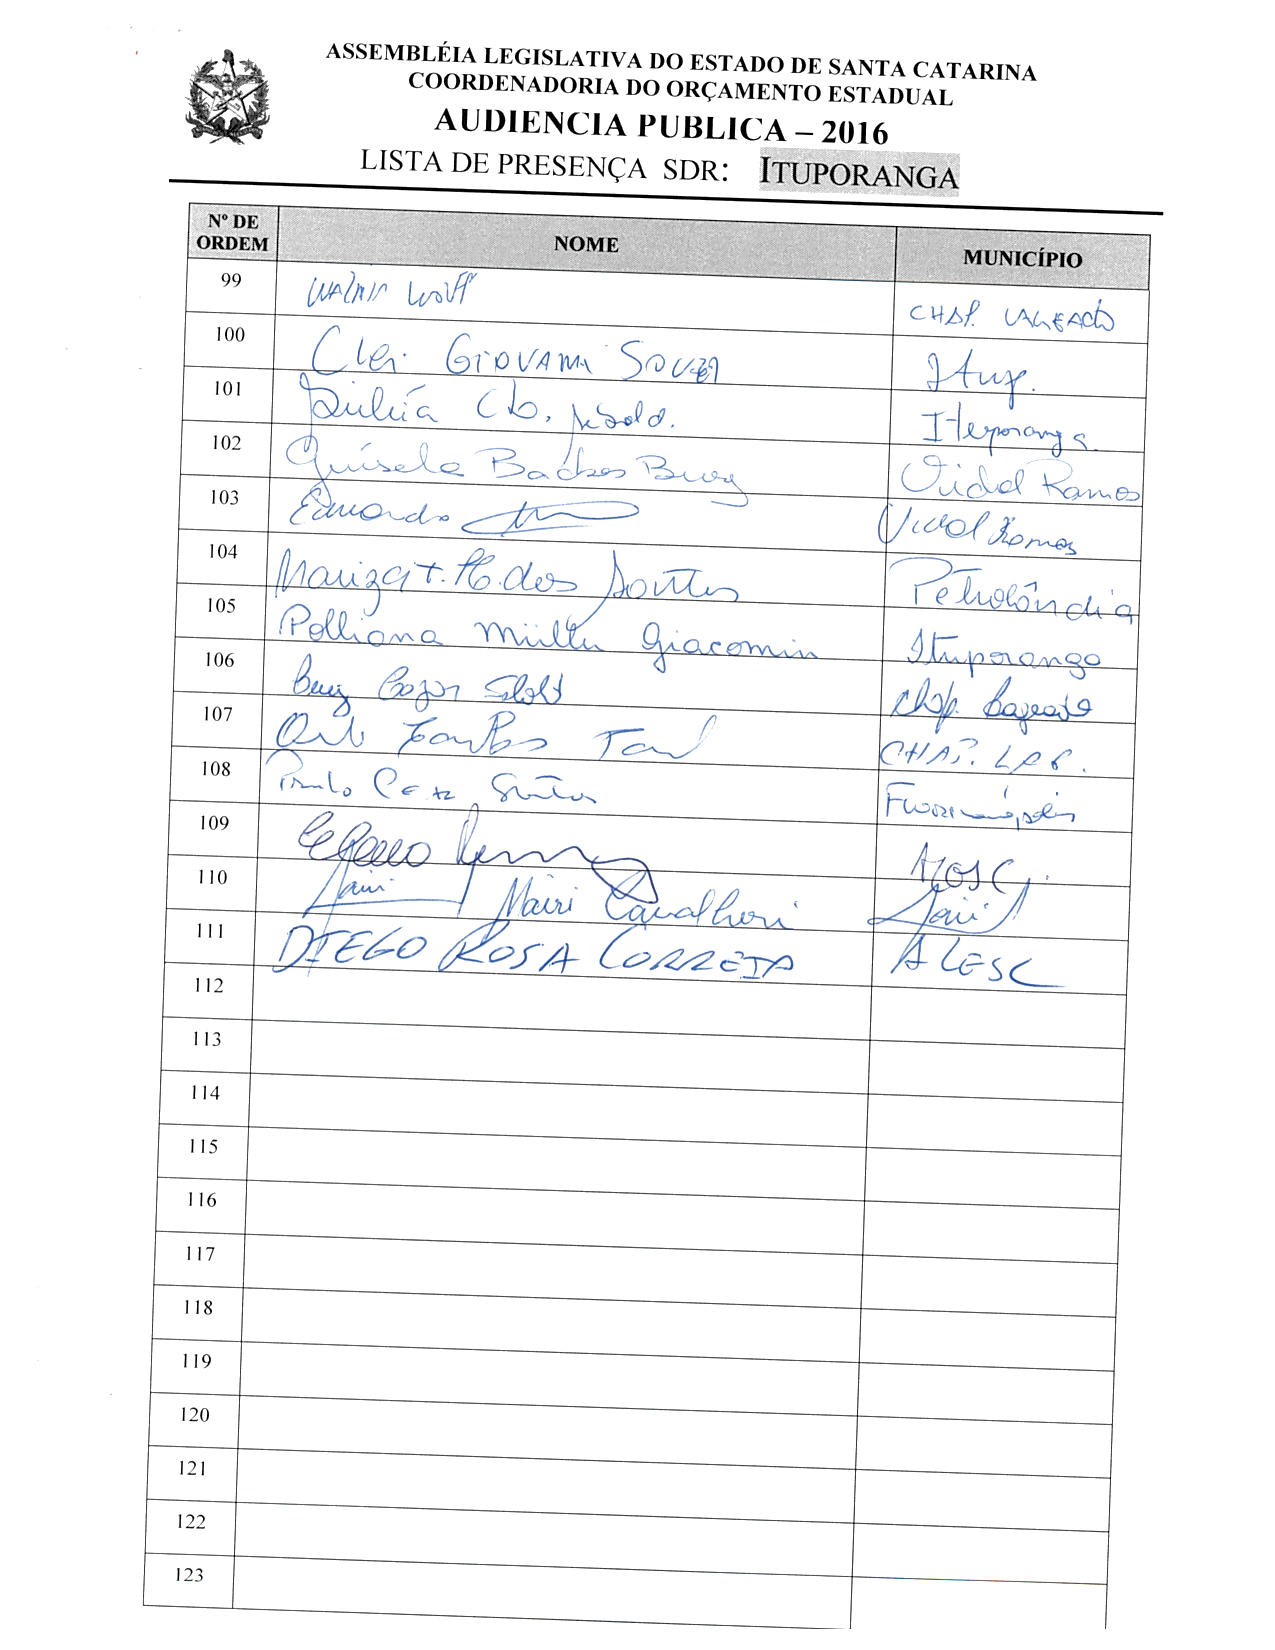 ASSEMBLÉIA LEGISLATIVA DO ESTADO DE SANTA CATARINA
COORDENADORIA DO ORÇAMENTO ESTADUAL
AUDIENCIA PUBLICA – 2016
LISTA DE PRESENÇA SDR: ITUPORANGA
Nº DE ORDEM NOME MUNICÍPIO
99 WALMIR WOLFF CHAP. LAGEADO
100 Clei. GIOVANI SOUZA Itup.
101 Ituporanga
102 Guisela Backes Vidal Ramos
103 Edmundo Vidal Ramos
104 Mariza T. H. dos Santos Petrolândia
105 Polliana Müller Giacomin Ituporanga
106 Chap. Lageado
107 CHAP. LAG.
108 Paulo Cezar Florianópolis
109
110 Mairi Cavalheri
111 DIEGO ROSA CORREIA ALESC
112
113
114
115
116
117
118
119
120
121
122
123